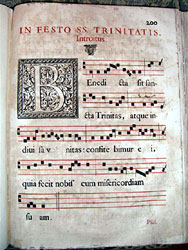 200
IN FESTO SS. TRINITATIS.
Introitus.
BEnedi cta sit san
cta Trinitas, atque in
diui sa v nitas: confite bimur e i,
quia fecit nobis cum misericordiam
su am.